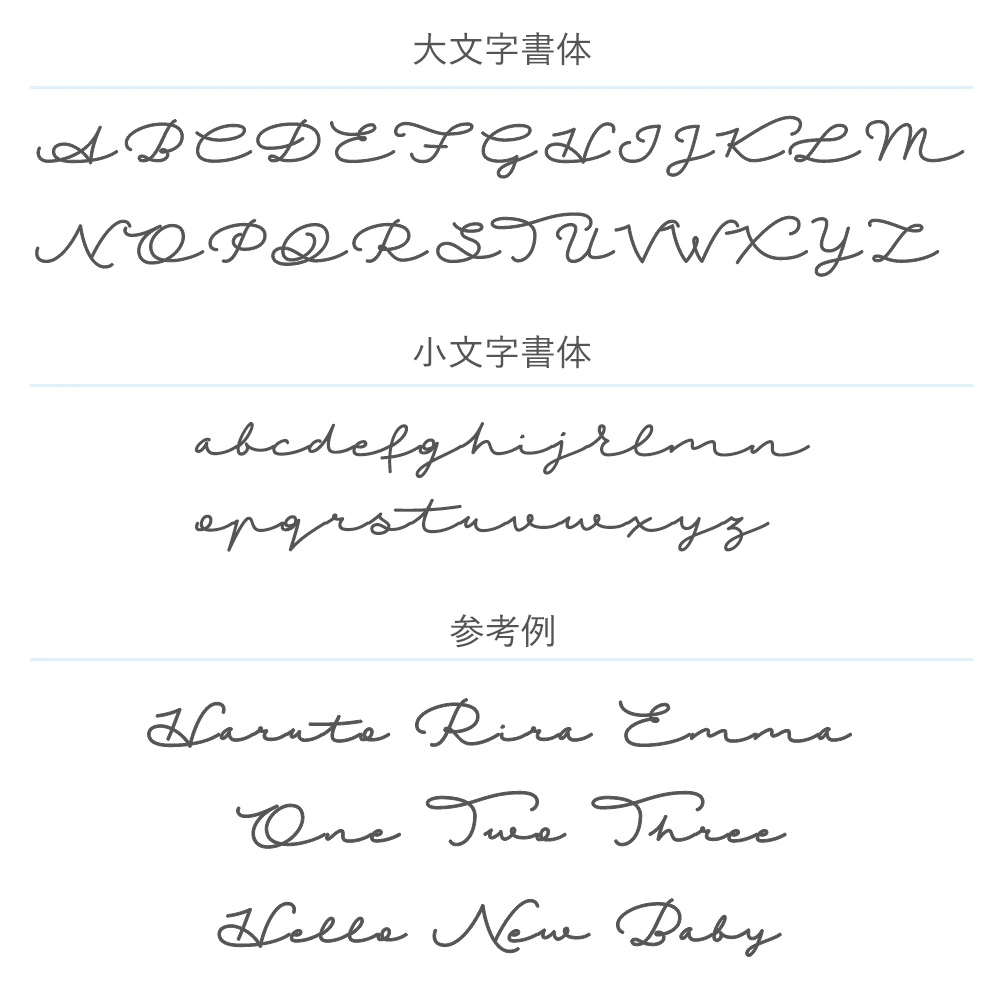 大文字書体
ABCDEFGHIJKLM
NOPQRSTUVWXYZ
小文字書体
abcdefghijklmn
opqrstuvwxyz
参考例
Haruto Rira Emma
One Two Three
Hello New Baby